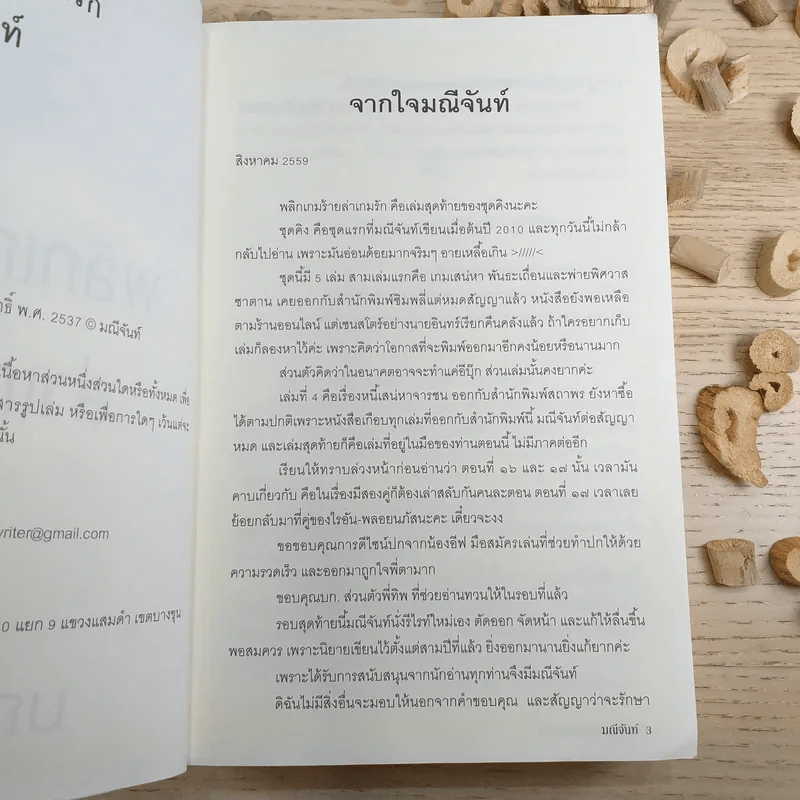 รัก
ท์
ธิ์ พ.ศ. 2537 © มณีจันท์
เนื้อหาส่วนหนึ่งส่วนใดหรือทั้งหมด เพื่อ
สารรูปเล่ม หรือเพื่อการใดๆ เว้นแต่จะ
นั้น
writer@gmail.com
0 แยก 9 แขวงแสมดำ เขตบางขุน
จากใจมณีจันท์
สิงหาคม 2559
พลิกเกมร้ายล่าเกมรัก คือเล่มสุดท้ายของชุดคิงนะคะ
ชุดคิง คือชุดแรกที่มณีจันท์เขียนเมื่อต้นปี 2010 และทุกวันนี้ไม่กล้า
กลับไปอ่าน เพราะมันอ่อนด้อยมากจริมๆ อายเหลื้อเกิน >/////<
ชุดนี้มี 5 เล่ม สามเล่มแรกคือ เกมเสน่หา พันธะเถื่อนและพ่ายพิศวาส
ซาตาน เคยออกกับสำนักพิมพ์ซิมพลี่แต่หมดสัญญาแล้ว หนังสือยังพอเหลือ
ตามร้านออนไลน์ แต่เชนสโตร์อย่างนายอินทร์เรียกคืนคลังแล้ว ถ้าใครอยากเก็บ
เล่มก็ลองหาไว้ค่ะ เพราะคิดว่าโอกาสที่จะพิมพ์ออกมาอีกคงน้อยหรือนานมาก
ส่วนตัวคิดว่าในอนาคตอาจจะทำแค่อีบุ๊ก ส่วนเล่มนั้นคงยากค่ะ
เล่มที่ 4 คือเรื่องหนี้เสน่หาจารชน ออกกับสำนักพิมพ์สถาพร ยังหาซื้อ
ได้ตามปกติเพราะหนังสือเกือบทุกเล่มที่ออกกับสำนักพิมพ์นี้ มณีจันท์ต่อสัญญา
หมด และเล่มสุดท้ายก็คือเล่มที่อยู่ในมือของท่านตอนนี้ ไม่มีภาคต่ออีก
เรียนให้ทราบล่วงหน้าก่อนอ่านว่า ตอนที่ ๑๖ และ ๑๗ นั้น เวลามัน
คาบเกี่ยวกับ คือในเรื่องมีสองคู่ก็ต้องเล่าสลับกันคนละตอน ตอนที่ ๑๗ เวลาเลย
ย้อยกลับมาที่คู่ของไรอัน-พลอยนภัสนะคะ เดี๋ยวจะงง
ขอขอบคุณการดีไซน์ปกจากน้องอีฟ มือสมัครเล่นที่ช่วยทำปกให้ด้วย
ความรวดเร็ว และออกมาถูกใจพี่ตามาก
ขอบคุณบก. ส่วนตัวพี่ทิพ ที่ช่วยอ่านทวนให้ในรอบที่แล้ว
รอบสุดท้ายนี้มณีจันท์นั่งรีไรท์ใหม่เอง ตัดออก จัดหน้า และแก้ให้ลื่นขึ้น
พอสมควร เพราะนิยายเขียนไว้ตั้งแต่สามปีที่แล้ว ยิ่งออกมานานยิ่งแก้ยากค่ะ
เพราะได้รับการสนับสนุนจากนักอ่านทุกท่านจึงมีมณีจันท์
ดิฉันไม่มีสิ่งอื่นจะมอบให้นอกจากคำขอบคุณ และสัญญาว่าจะรักษา
มณีจันท์ 3